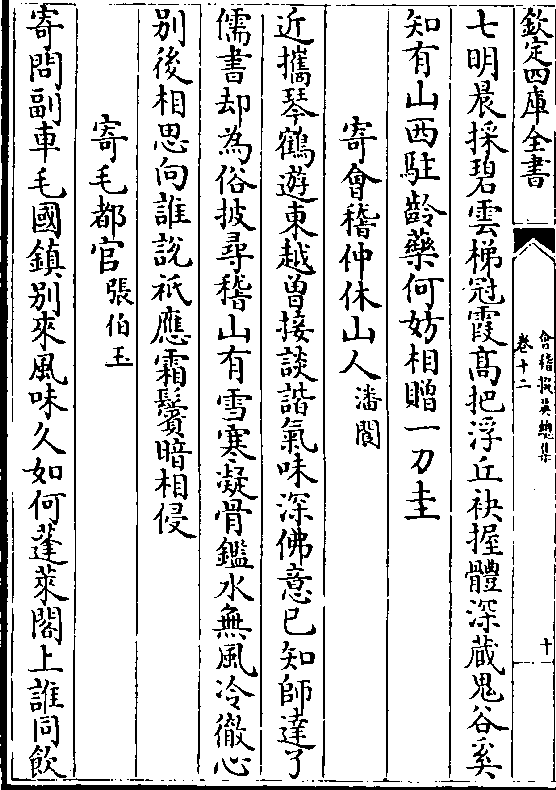 欽定四庫全書
會稽掇英總集
卷十二
十
七明晨採碧雲梯冠霞髙把浮丘袂握體深藏鬼谷奚
知有山西駐齡藥何妨相贈一刀圭
寄會稽仲休山人潘閬
近攜琴鶴遊東越曽接談諧氣味深佛意已知師達了
儒書却為俗披尋稽山有雪寒凝骨鑑水無風冷徹心
別後相思向誰說祇應霜鬢暗相侵
寄毛都官張伯玉
寄問副車毛國鎮別來風味久如何蓬萊閣上誰同飲